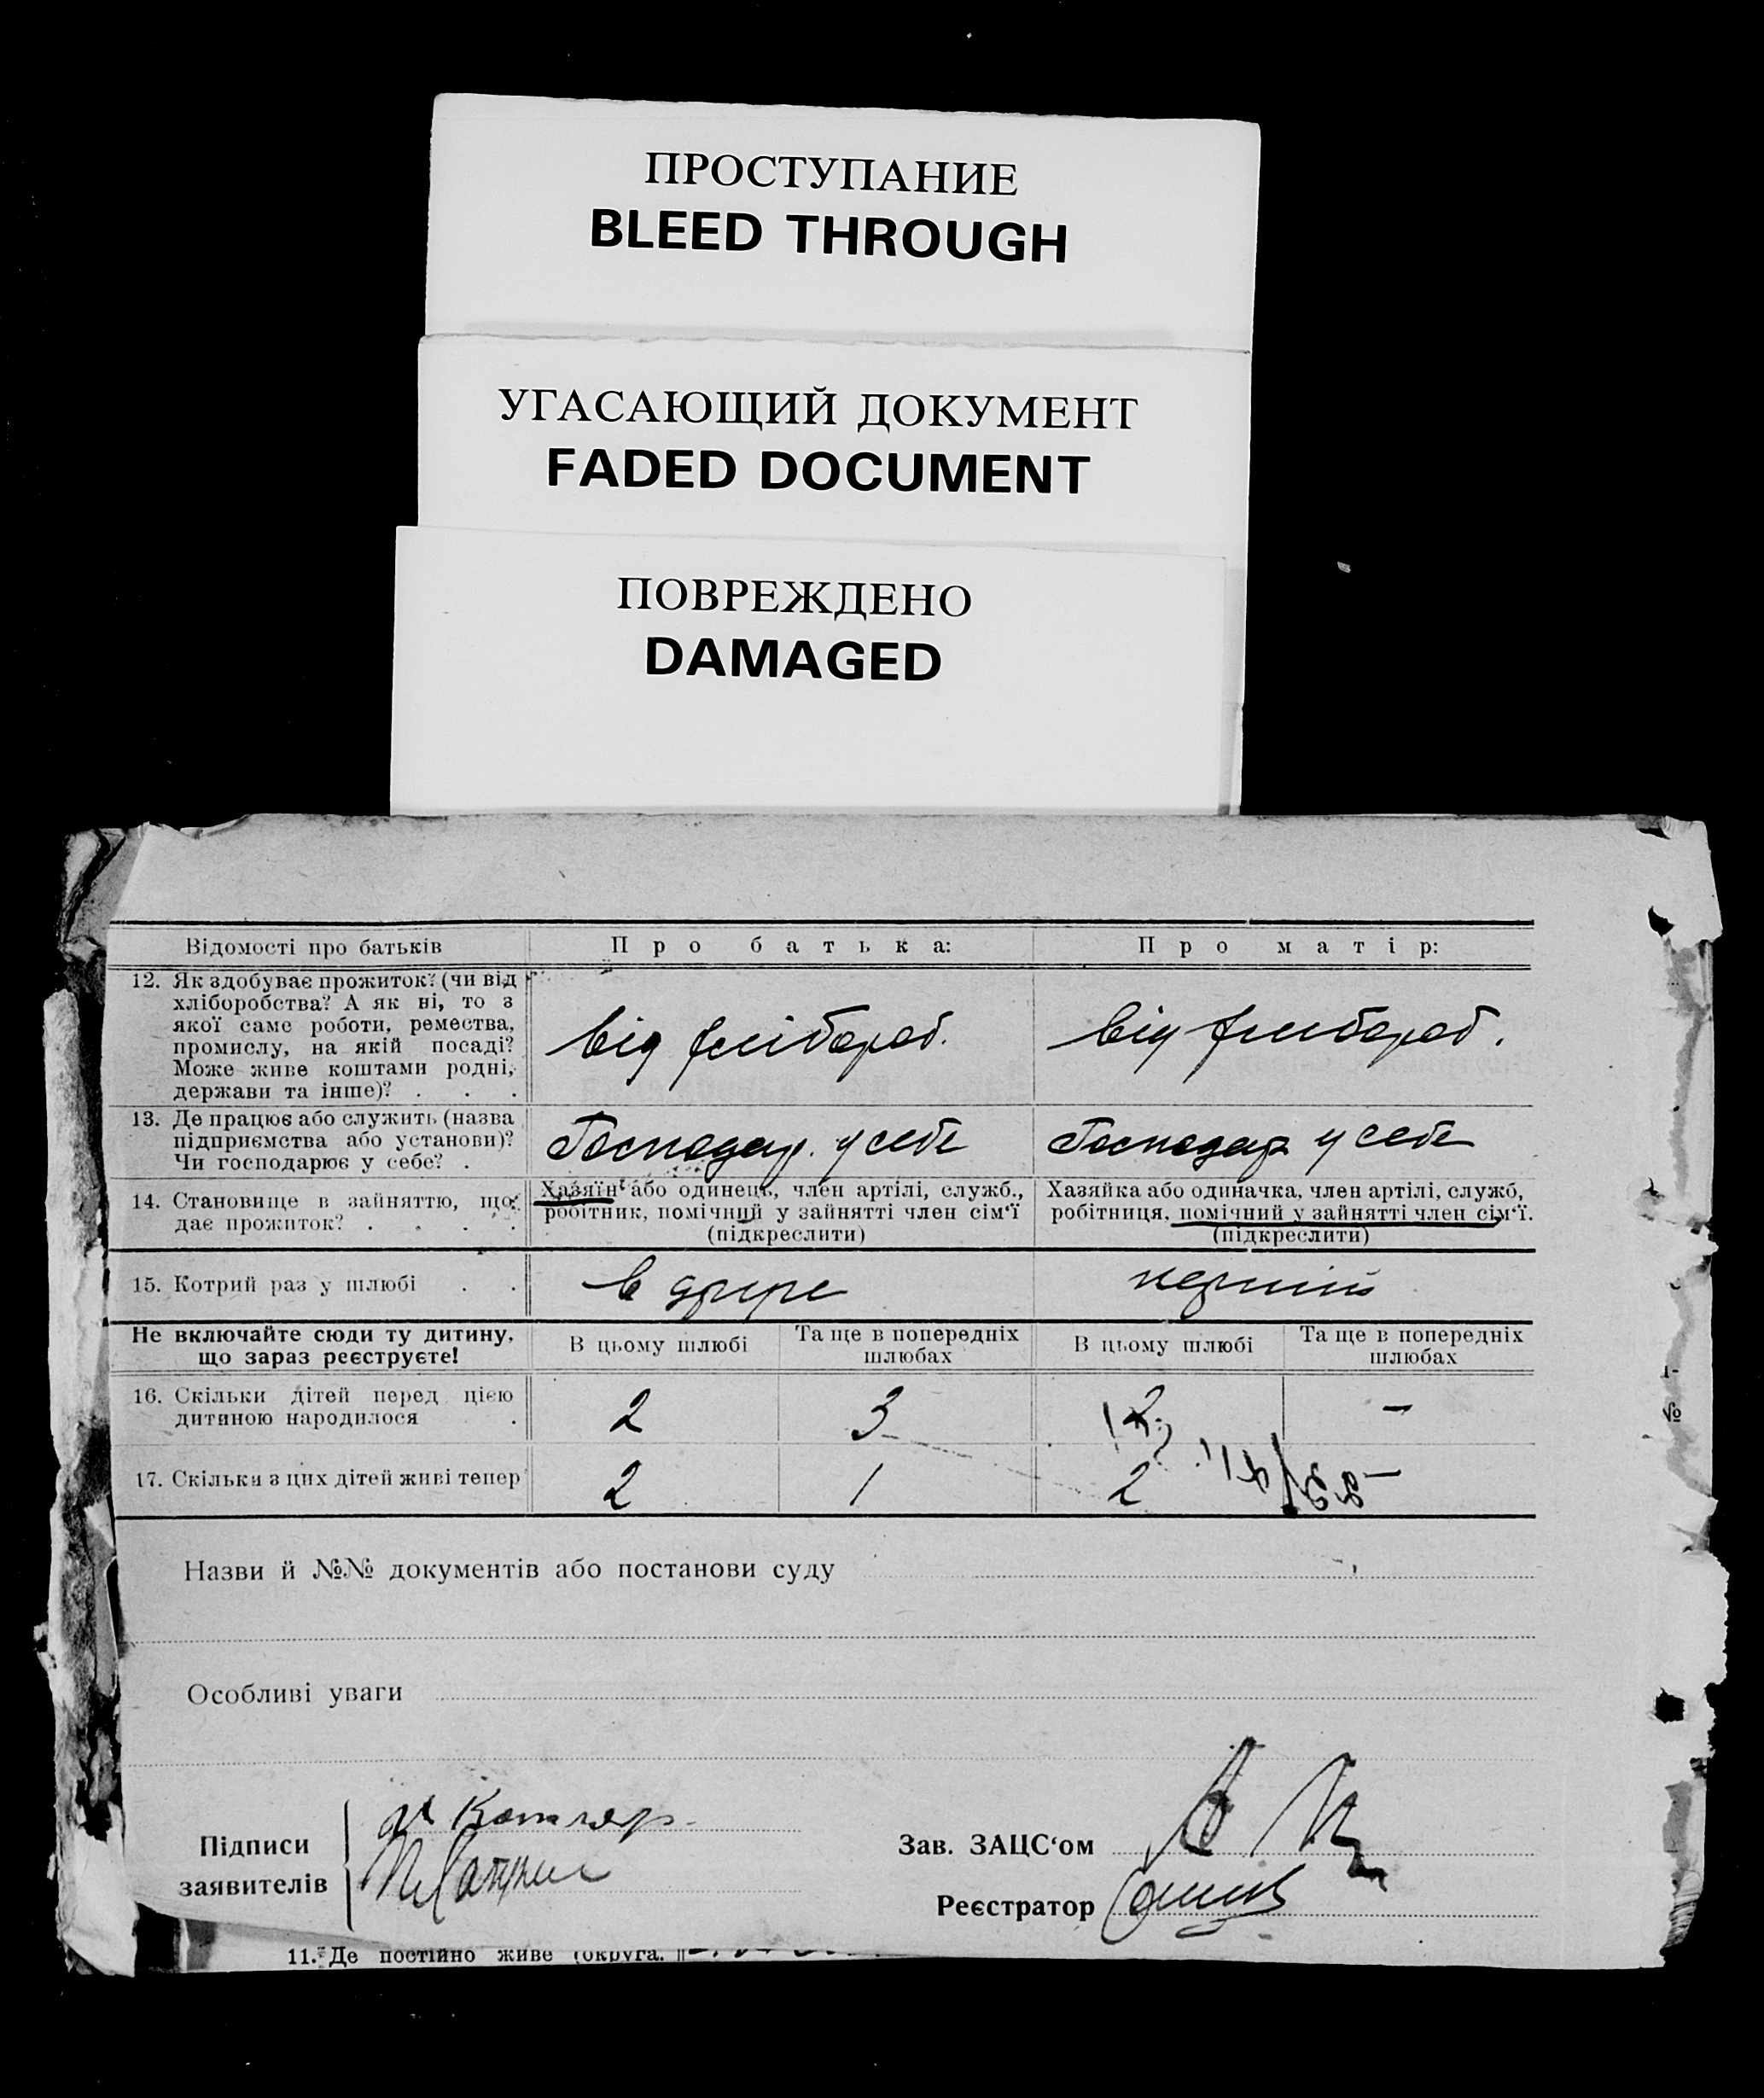 ПРОСТУПАНИЕ
BLEED THROUGH
УГАСАЮЩИЙ ДОКУМЕНТ
FADED DOCUMENT
ПОВРЕЖДЕНО
DAMAGED
Відомості про батьків
Про батька:
Про матір:
12. Як здобуває прожиток? (чи від
хліборобства? А як ні, то з
якої саме роботи, ремества,
промислу, на якій посаді?
Може живе коштами родні,
держави та інше)? . . .
від хлібороб.
від хлибороб.
13. Де працює або служить (назва
підприємства або установи)?
Чи господарює у себе? .
Господар. у себе
Господар у себе
14. Становище в зайняттю, що
дає прожиток? . . . .
Хазяїн або одинець, член артілі, служб.,
робітник, помічний у зайнятті член сім'ї
(підкреслити)
Хазяйка або одиначка, член артілі, служб,
робітниця, помічний у зайнятті член сім'ї.
(підкреслити)
15. Котрий раз у шлюбі . .
в друге
перший
Не включайте сюди ту дитину,
що зараз реєструєте!
В цьому шлюбі
Та ще в попередніх
шлюбах
В цьому шлюбі
Та ще в попередніх
шлюбах
16. Скільки дітей перед цією
дитиною народилося .
2
3
2
–
17. Скільки з цих дітей живі тепер
2
1
2
–
Назви й №№ документів або постанови суду
Особливі уваги
Підписи
заявителів
Котляр
Зав. ЗАЦС'ом
Реєстратор
11. Де постійно живе (округа,
№